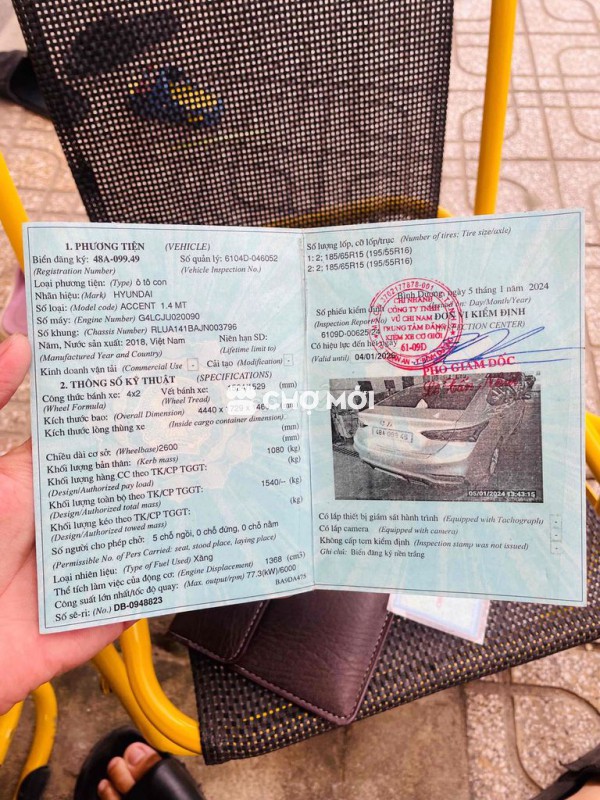 1. PHƯƠNG TIỆN (VEHICLE)
Biển đăng ký: 48A-099.49 Số quản lý: 6104D-046052
(Registration Number) (Vehicle Inspection No.)
Loại phương tiện: (Type) ô tô con
Nhãn hiệu: (Mark) HYUNDAI
Số loại: (Model code) ACCENT 1.4 MT
Số máy: (Engine Number) G4LCJJ020090
Số khung: (Chassis Number) RLUA141BAJN003796
Năm, Nước sản xuất: 2018, Việt Nam Niên hạn SD:
(Manufactured Year and Country) (Lifetime limit to)
Kinh doanh vận tải (Commercial Use) - Cải tạo (Modification) -
2. THÔNG SỐ KỸ THUẬT (SPECIFICATIONS)
Công thức bánh xe: 4x2 Vết bánh xe: (mm)
(Wheel Formula) (Wheel Tread)
Kích thước bao: (Overall Dimension) 4440 x (mm)
Kích thước lòng thùng xe (Inside cargo container dimension)
(mm)
Chiều dài cơ sở: (Wheelbase) 2600 (mm)
Khối lượng bản thân: (Kerb mass) 1080 (kg)
Khối lượng hàng CC theo TK/CP TGGT: (kg)
(Design/Authorized pay load)
Khối lượng toàn bộ theo TK/CP TGGT: 1540/- (kg)
(Design/Authorized total mass)
Khối lượng kéo theo TK/CP TGGT: (kg)
(Design/Authorized towed mass)
Số người cho phép chở: 5 chỗ ngồi, 0 chỗ đứng, 0 chỗ nằm
(Permissible No. of Pers Carried: seat, stood place, laying place)
Loại nhiên liệu: (Type of Fuel Used) Xăng
Thể tích làm việc của động cơ: (Engine Displacement) 1368 (cm3)
Công suất lớn nhất/tốc độ quay: (Max. output/rpm) 77.3(kW)/6000
Số sê-ri: (No.) DB-0948823 BA9DA475
Số lượng lốp, cỡ lốp/trục (Number of tires; Tire size/axle)
1: 2; 185/65R15 (195/55R16)
2: 2; 185/65R15 (195/55R16)
Bình Dương, ngày 5 tháng 1 năm 2024
(Issued on: Day/Month/Year)
Số phiếu kiểm định ĐƠN VỊ KIỂM ĐỊNH
(Inspection Report No) (INSPECTION CENTER)
6109D-00625/24
Có hiệu lực đến hết ngày
(Valid until) 04/01/202
3702177878-001
CHI NHÁNH
CÔNG TY TNHH
VŨ CHI NAM
TRUNG TÂM ĐĂNG
KIỂM XE CƠ GIỚI
61-09D
PHÓ GIÁM ĐỐC
CHỢ MỚI
48A 099.49
05/01/2024 13:43:15
Có lắp thiết bị giám sát hành trình (Equipped with Tachograph) -
Có lắp camera (Equipped with camera) -
Không cấp tem kiểm định (Inspection stamp was not issued) -
Ghi chú: Biển đăng ký nền trắng.